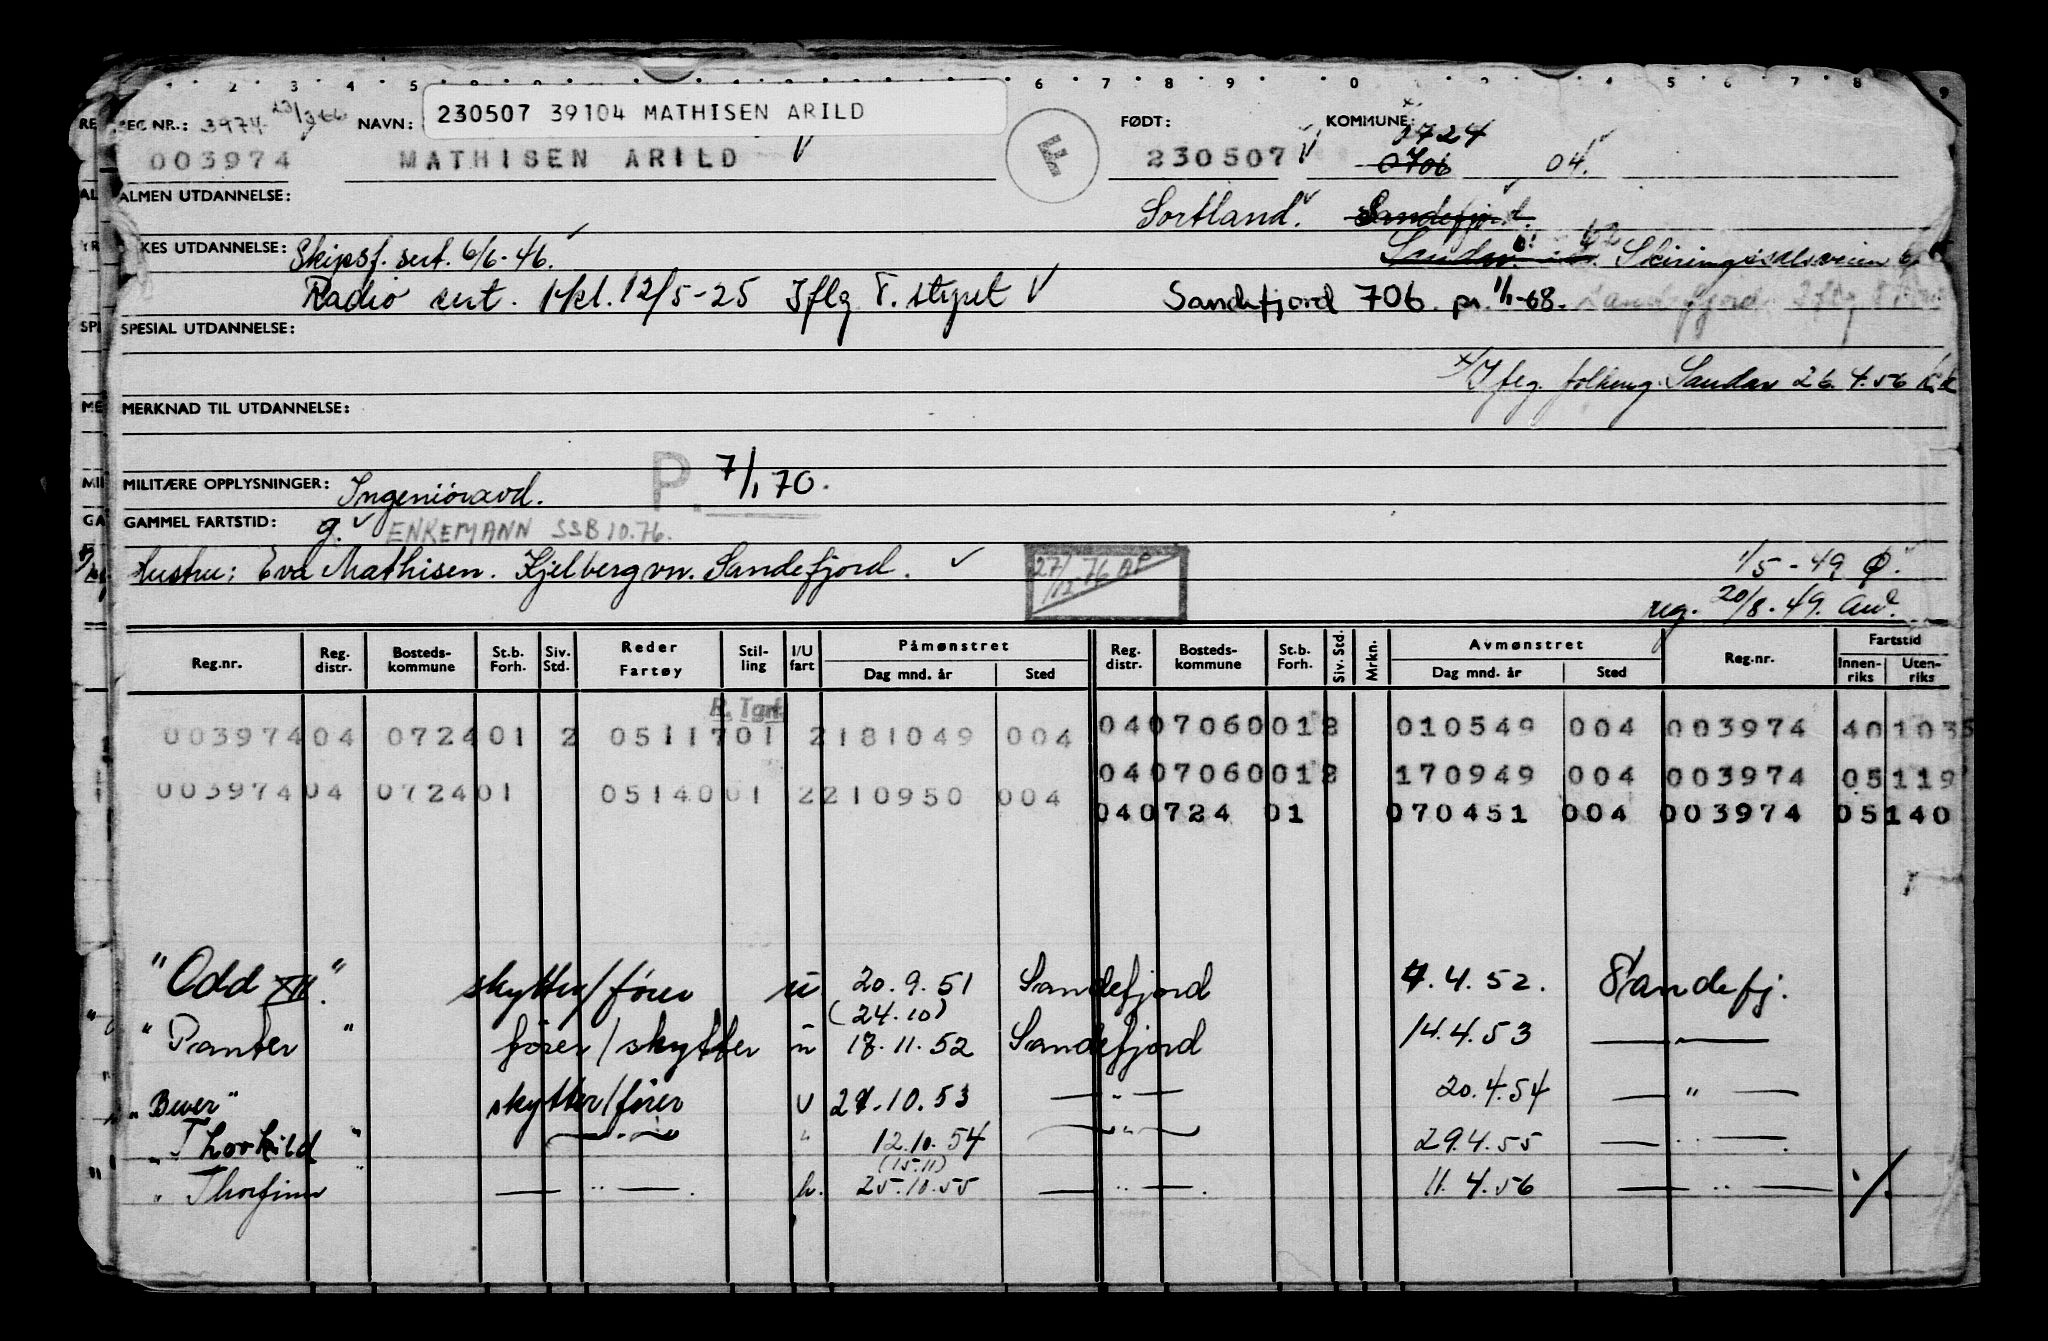 REG NR.: 3974 NAVN: 230507 39104 MATHISEN ARILD FØDT: KOMMUNE:
003974 MATHISEN ARILD F 230507 0724 0706 04.
ALMEN UTDANNELSE: Sortland. Sandefjord.
YRKES UTDANNELSE: Skipsf. sert. 6/6-46. Sandar Skiringssalsveien
Radio cert. 1 kl. 12/5-25 Iflg T. styret Sandefjord 706. pr. 1/1-68. Sandefjord
SPESIAL UTDANNELSE:
x/ Iflg. folkereg. Sandar 26.4.56
MERKNAD TIL UTDANNELSE:
P. 7/1 70.
MILITÆRE OPPLYSNINGER: Ingeniöravd.
GAMMEL FARTSTID: g. ENKEMANN SSB 10.76.
Hustru: Eva Mathisen. Kjelbergvn. Sandefjord. 27/12-76 1/5-49
reg. 20/8.49.
Reg.nr. Reg. distr. Bosteds- kommune St.b. Forh. Siv. Std. Reder Fartøy Stil- ling I/U fart Påmønstret Dag mnd. år Sted Reg. distr. Bosteds- kommune St.b. Forh. Siv. Std. Mrkn. Avmønstret Dag mnd. år Sted Reg.nr. Fartstid Innen- riks Uten- riks
R. Tgrf
003974 04 0724 01 2 05117 01 2 181049 004 04 0706 0012 010549 004 003974 40 1035
04 0706 0012 170949 004 003974 05 119
003974 04 0724 01 05140 01 2 210950 004 04 0724 01 070451 004 003974 05 140
"Odd XII". skytter/fører u 20.9.51 Sandefjord 4.4.52. Sandefj.
(24.10)
"Panter" fører/skytter u 17.11.52 Sandefjord 14.4.53 — " —
"Bever" skytter/fører u 27.10.53 — " — 20.4.54 — " —
"Thorkild" — " — " 12.10.54 — " — 29.4.55 — " —
(15.11)
"Thorfinn" — " — 25.10.55 — " — 11.4.56 — " — ·/·